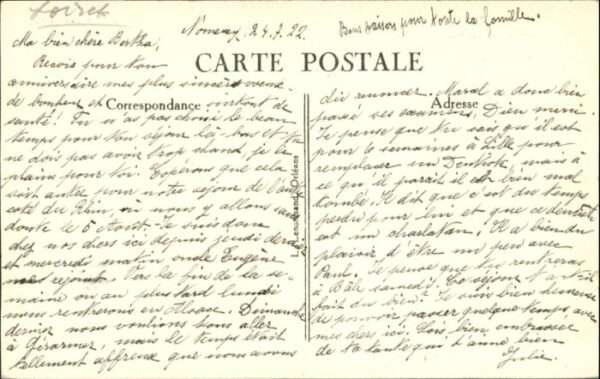 Loiret
Nomeny, 24.7.22.
Bons baisers pour toute la famille.
Ma bien chère Bertha,
CARTE POSTALE
Correspondance
Adresse
Reçois pour ton
anniversaire mes plus sincères voeux
de bonheur et surtout de
santé! Tu n'as pas choisi le beau
temps pour ton séjour là-bas et tu
ne dois pas avoir trop chaud, je te
plains pour toi. Espérons que cela
soit autre pour notre séjour de l'autre
côté du Rhin, où nous y allons sans
doute le 5 Août. Je suis donc
chez nos chers ici depuis jeudi dernier
et mercredi matin oncle Eugène
me rejoint. Vers la fin de la se-
maine ou au plus tard lundi
nous rentrerons en Alsace. Dimanche
dernier nous voulions tous aller
à Gérarmer, mais le temps était
tellement affreux que nous avons
dû renoncer. Marcel a donc bien
passé ses examens, Dieu merci.
Je pense que tu sais qu'il est
pour 6 semaines à Lille pour
remplacer un Dentiste, mais à
ce qu'il paraît il est bien mal
tombé. Il dit que c'est du temps
perdu pour lui et que ce dentiste
est un charlatan. Il a bien du
plaisir d'être un peu avec
Paul. Je pense que tu rentreras
à Bâle samedi. Ce séjour t'a-t-il
fait du bien? Je suis bien heureuse
de pouvoir passer quelque temps avec
mes chers ici. Sois bien embrassée
de ta tante qui t'aime bien
Julie.